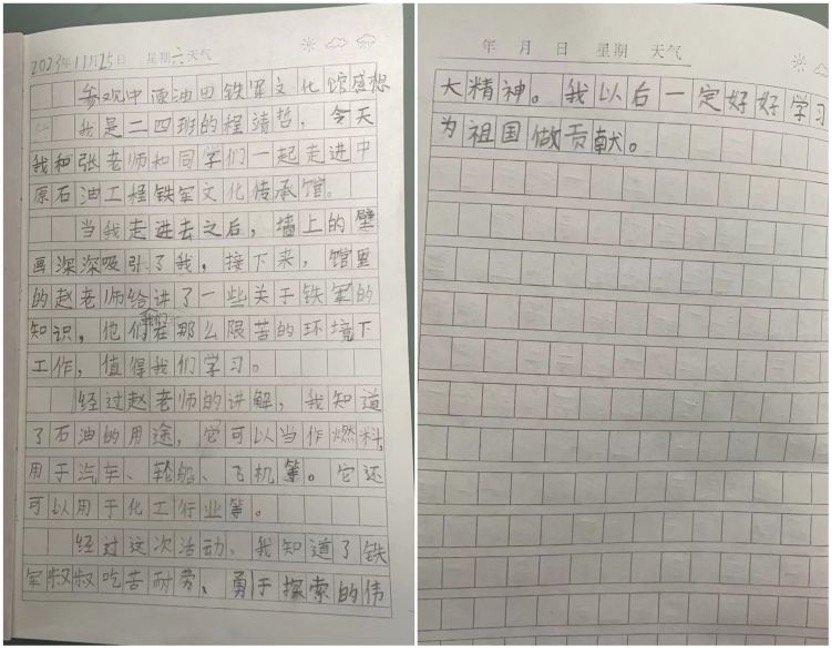 2023年11月25日 星期六 天气
参观中原油田铁军文化馆感想
我是二四班的程靖哲，今天
我和张老师和同学们一起走进中
原石油工程铁军文化传承馆。
当我走进去之后，墙上的壁
画深深吸引了我，接下来，馆里
的赵老师给我们讲了一些关于铁军的
知识，他们在那么限苦的环境下
工作，值得我们学习。
经过赵老师的讲解，我知道
了石油的用途，它可以当作燃料，
用于汽车、轮船、飞机等。它还
可以用于化工行业等。
经过这次活动，我知道了铁
军叔叔吃苦耐劳、勇于探索的伟
年 月 日 星期 天气
大精神。我以后一定好好学习
为祖国做贡献。